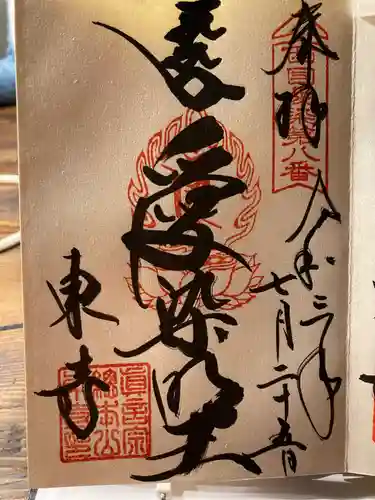 奉拝
西国愛染第八番
令和三年
七月二十五日
愛染明王
東寺
眞言宗
總本山